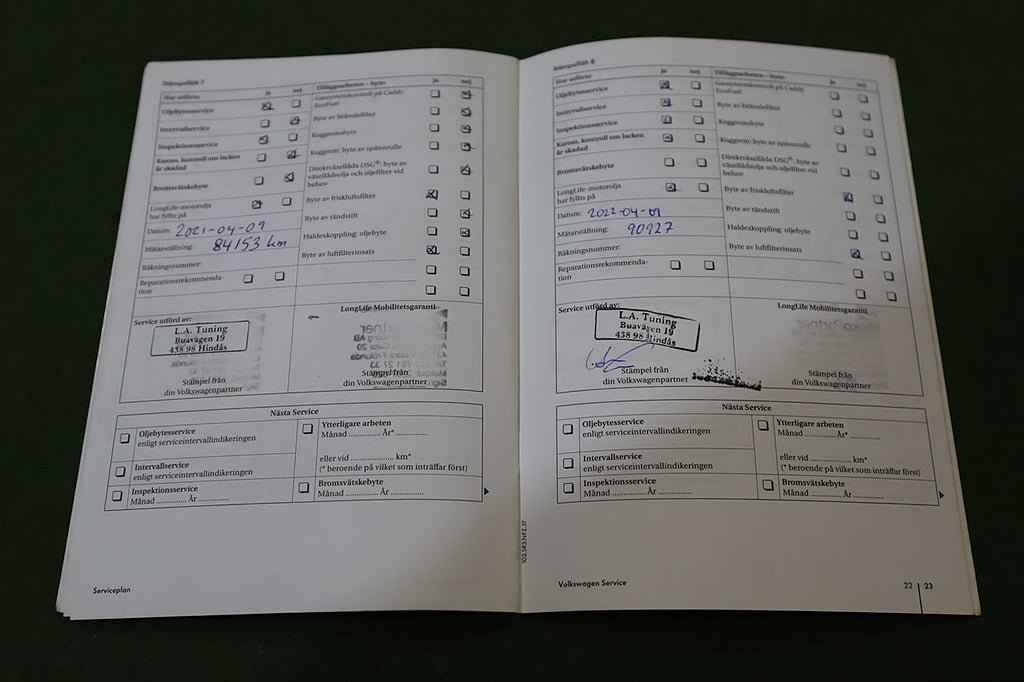 Stämpelfält 7
Har utförts: ja nej
Oljebytesservice
Intervallservice
Inspektionsservice
Kaross, kontroll om lacken
är skadad
Bromsvätskebyte
LongLife-motorolja
har fyllts på
Datum: 2021-04-09
Mätarställning: 84153 km
Räkningsnummer:
Reparationsrekommenda-
tion
Tilläggsarbeten – byte: ja nej
Gassystemkontroll på Caddy
EcoFuel
Byte av bränslefilter
Kuggremsbyte
Kuggrem: byte av spännrulle
Direktväxellåda DSG®: byte av
växellådsolja och oljefilter vid
behov
Byte av friskluftsfilter
Byte av tändstift
Haldexkoppling: oljebyte
Byte av luftfilterinsats
Service utförd av:
L.A. Tuning
Buavägen 19
438 98 Hindås
Stämpel från
din Volkswagenpartner
LongLife Mobilitetsgaranti
Stämpel från
din Volkswagenpartner
Nästa Service
Oljebytesservice
enligt serviceintervallindikeringen
Intervallservice
enligt serviceintervallindikeringen
Inspektionsservice
Månad .............. År ..............
Ytterligare arbeten
Månad .............. År* ..............
eller vid .................... km*
(* beroende på vilket som inträffar först)
Bromsvätskebyte
Månad .............. År ..............
Serviceplan
Stämpelfält 8
Har utförts: ja nej
Oljebytesservice
Intervallservice
Inspektionsservice
Kaross, kontroll om lacken
är skadad
Bromsvätskebyte
LongLife-motorolja
har fyllts på
Datum: 2022-04-01
Mätarställning: 90927
Räkningsnummer:
Reparationsrekommenda-
tion
Tilläggsarbeten – byte: ja nej
Gassystemkontroll på Caddy
EcoFuel
Byte av bränslefilter
Kuggremsbyte
Kuggrem: byte av spännrulle
Direktväxellåda DSG®: byte av
växellådsolja och oljefilter vid
behov
Byte av friskluftsfilter
Byte av tändstift
Haldexkoppling: oljebyte
Byte av luftfilterinsats
Service utförd av:
L.A. Tuning
Buavägen 19
438 98 Hindås
Stämpel från
din Volkswagenpartner
LongLife Mobilitetsgaranti
Stämpel från
din Volkswagenpartner
Nästa Service
Oljebytesservice
enligt serviceintervallindikeringen
Intervallservice
enligt serviceintervallindikeringen
Inspektionsservice
Månad .............. År ..............
Ytterligare arbeten
Månad .............. År* ..............
eller vid .................... km*
(* beroende på vilket som inträffar först)
Bromsvätskebyte
Månad .............. År ..............
102.5R3.NFZ.57
Volkswagen Service
22 | 23